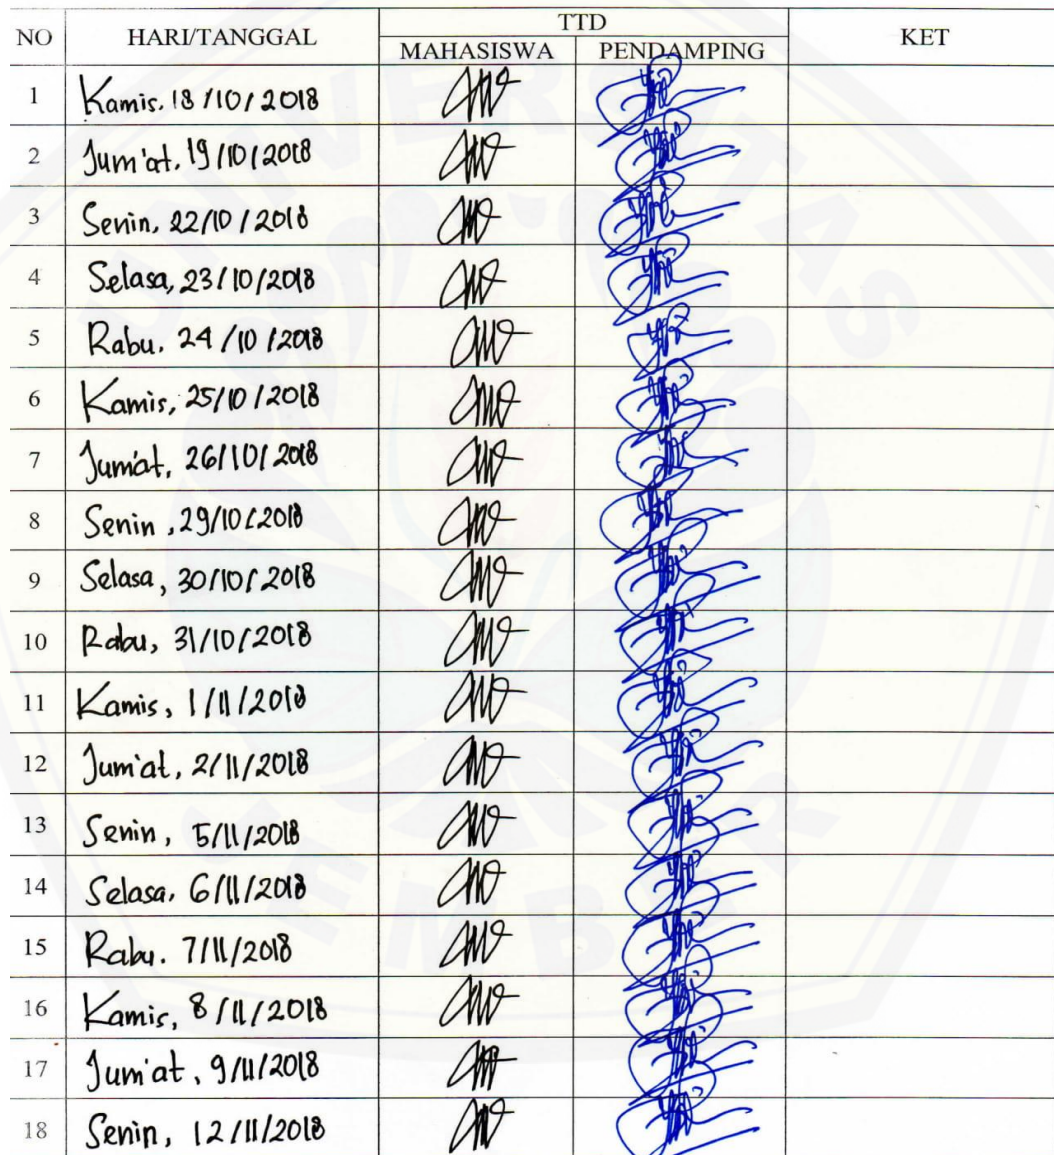 NO HARI/TANGGAL TTD KET
MAHASISWA PENDAMPING
1 Kamis, 18/10/2018
2 Jum'at, 19/10/2018
3 Senin, 22/10/2018
4 Selasa, 23/10/2018
5 Rabu, 24/10/2018
6 Kamis, 25/10/2018
7 Jum'at, 26/10/2018
8 Senin, 29/10/2018
9 Selasa, 30/10/2018
10 Rabu, 31/10/2018
11 Kamis, 1/11/2018
12 Jum'at, 2/11/2018
13 Senin, 5/11/2018
14 Selasa, 6/11/2018
15 Rabu, 7/11/2018
16 Kamis, 8/11/2018
17 Jum'at, 9/11/2018
18 Senin, 12/11/2018
UNIVERSITAS
JEMBER